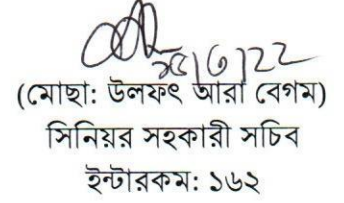 ২৫/৬/২২
(মোছা: উলফৎ আরা বেগম)
সিনিয়র সহকারী সচিব
ইন্টারকম: ১৬২